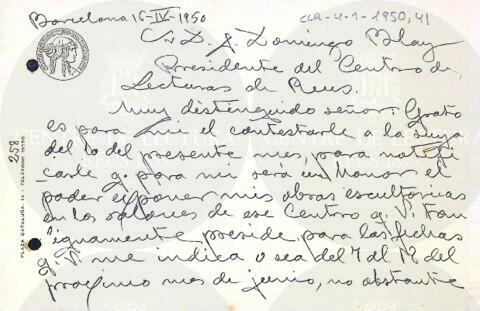 Barcelona 16-IV-1950
CLR-4-1-1950,41
Sr D. J. Domingo Blay
Presidente del Centro de
Lecturas de Reus.
Muy distinguido señor: Grato
es para mi el contestarle a la suya
del 10 del presente mes, para notifi
carle q. para mi sera un honor el
poder exponer mis obras escultoricas
en los salones de ese Centro q. V. tan
dignamente preside para las fechas
q. V. me indica o sea del 7 al 18 del
proximo mes de junio, no obstante
258
PLAZA CATALUÑA, 14 - TELEFONO
CENTRE DE LECTURA